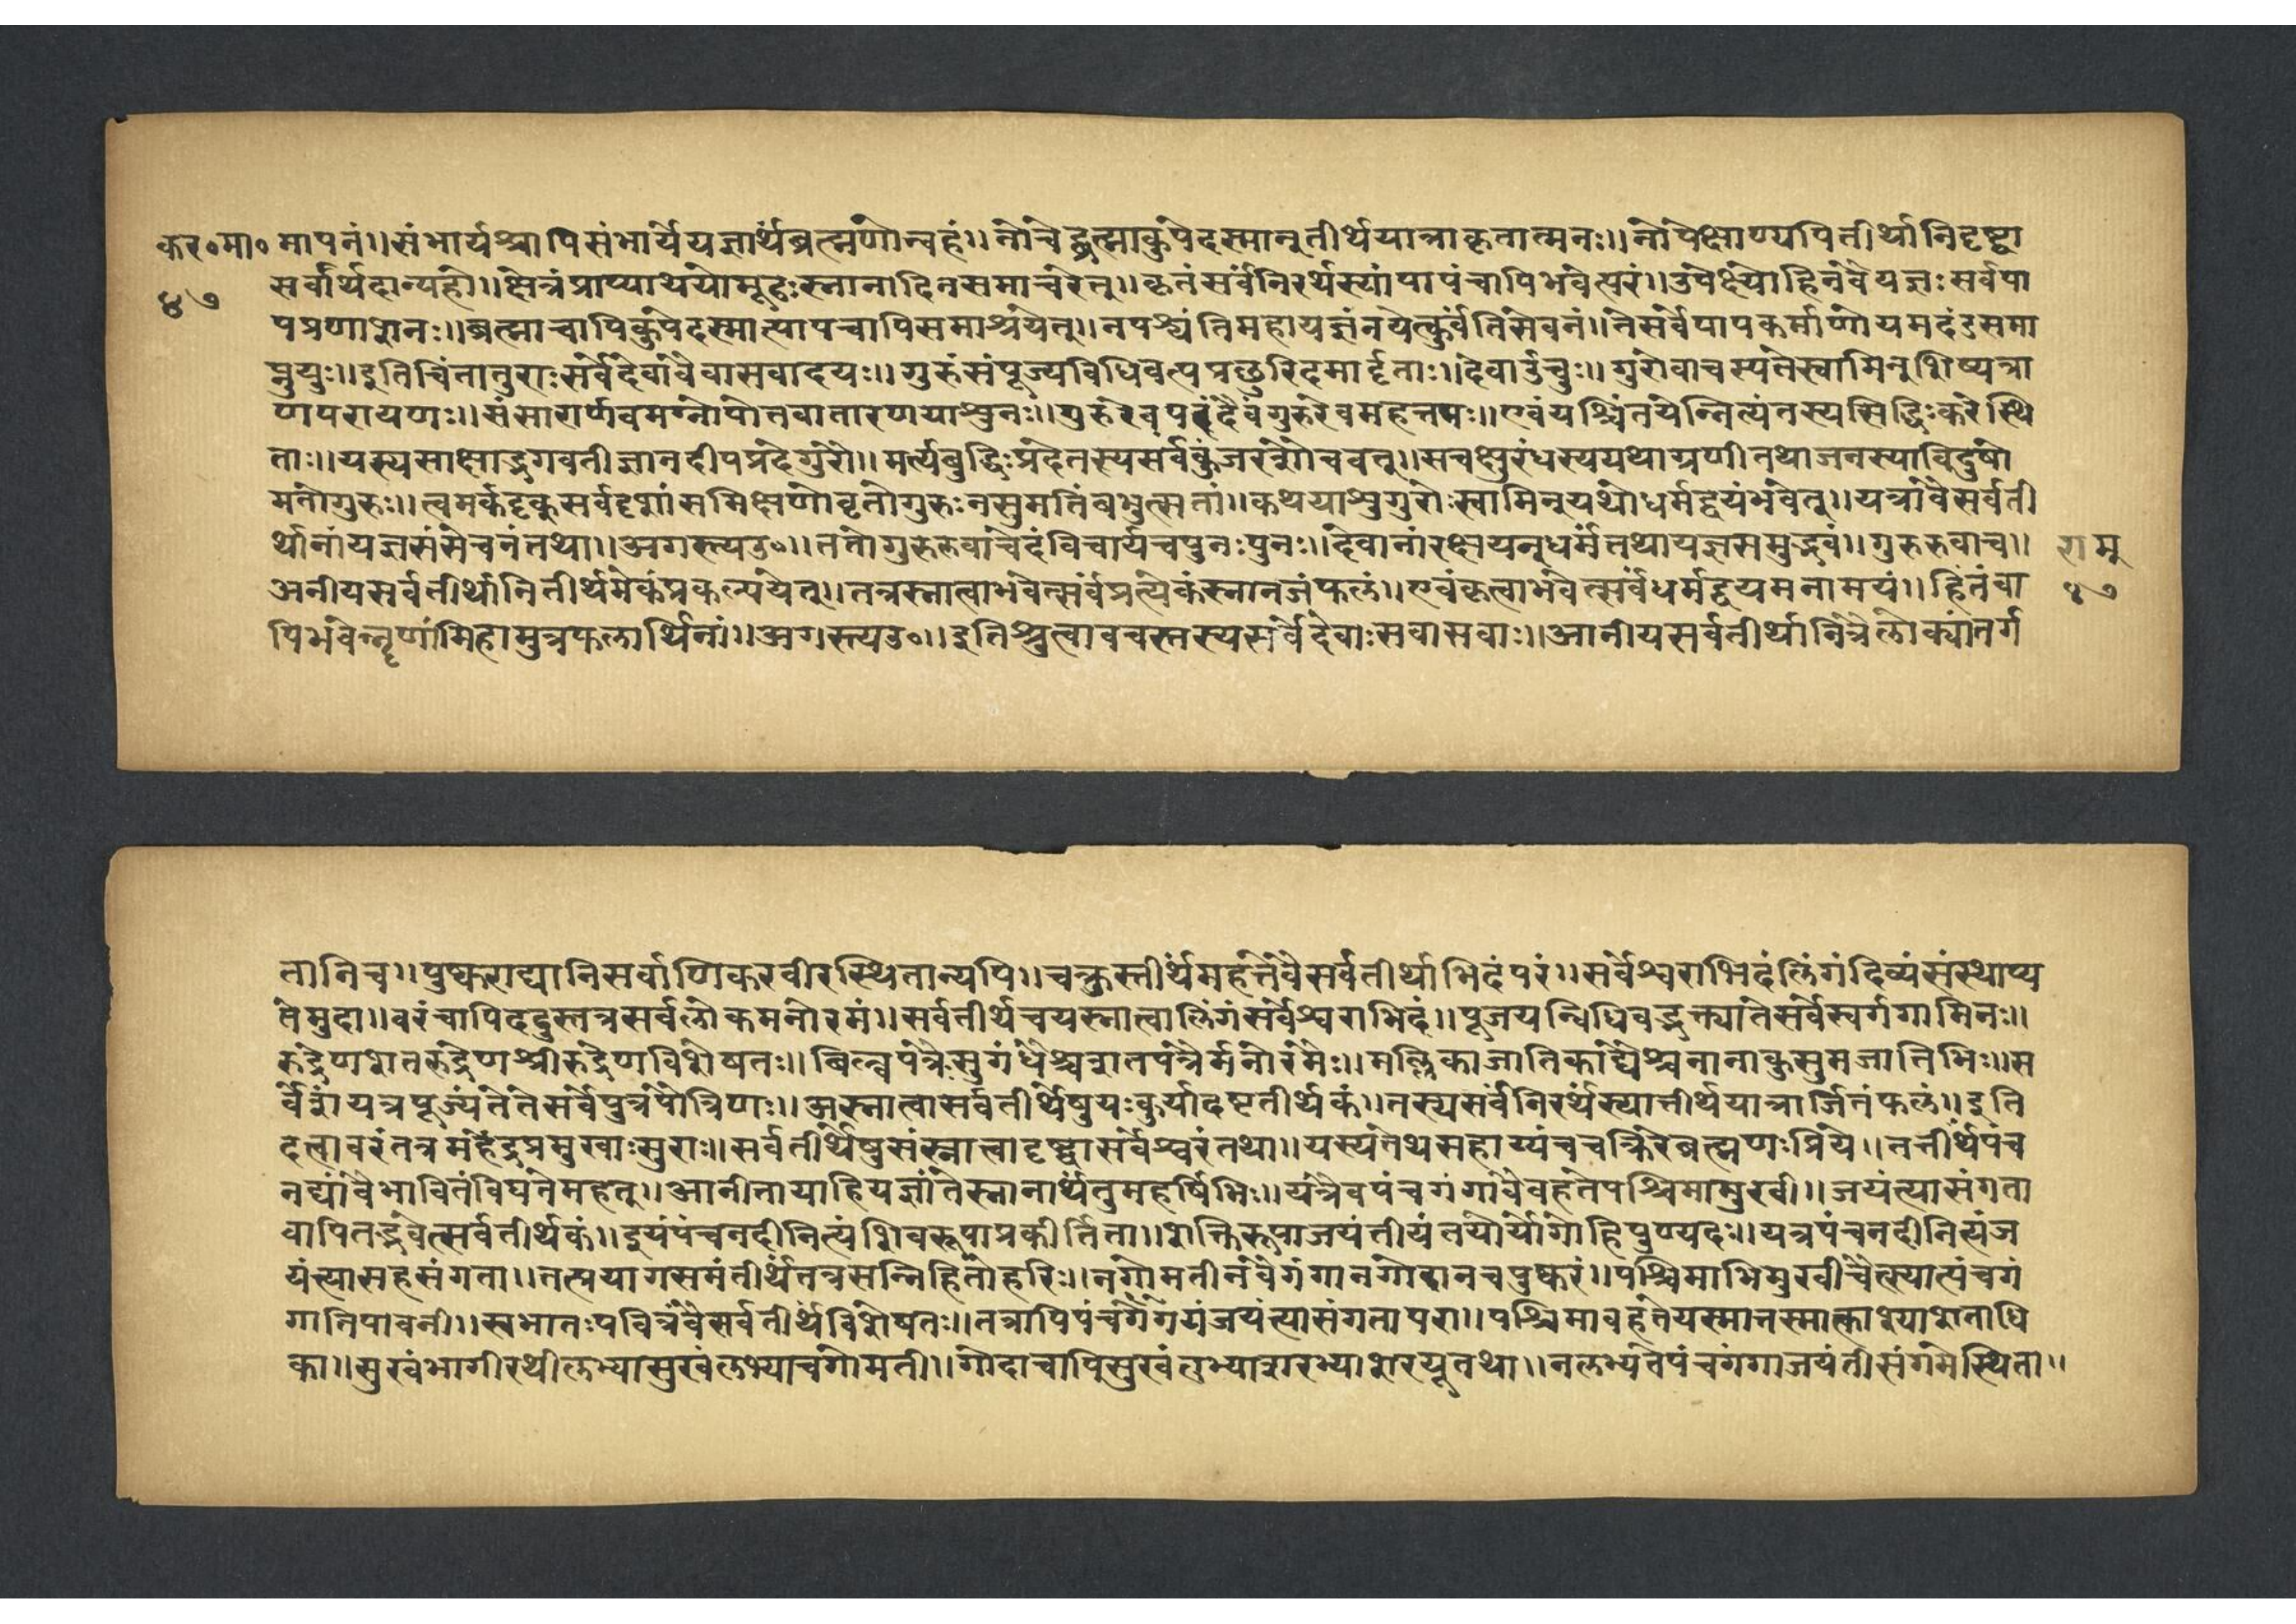 कर॰मा॰ मापनं॥संभार्यश्चापिसंभार्येयज्ञार्थंब्रह्मणोन्वहं॥नोचेद्ब्रह्माकुपेदस्मान्तीर्थयात्राकृतात्मनः॥नोपेक्षाण्यपितीर्थानिदृष्ट्वा
४७ सर्वार्थदान्यहो॥क्षेत्रंप्राप्याथयोमूढःस्नानादिनसमाचरेत्॥कृतंसर्वंनिरर्थस्यांपापंचापिभवेत्परं॥उपेक्ष्योहिनवैयज्ञःसर्वपा
पप्रणाशनः॥ब्रह्माचापिकुपेदस्मात्पापंचापिसमाश्रयेत्॥नपश्यंतिमहायज्ञंनयेत्कुर्वंतिसेवनं॥तेसर्वेपापकर्माणोयमदंडसमा
प्नुयुः॥इतिचिंतातुराःसर्वेदेवावैवासवादयः॥गुरुंसंपूज्यविधिवत्पप्रछुरिदमादृताः॥देवाउचुः॥गुरोवाचस्पतेस्वामिन्शिष्यत्रा
णपरायणः॥संसारार्णवमग्नोपोतवातारणयाश्रुनः॥गुरुरेवपरंदैवंगुरुरेवमहत्तमः॥एवंयश्चिंतयेन्नित्यंतस्यसिद्धिःकरेस्थि
ताः॥यस्यसाक्षाद्भगवतीज्ञानदीपप्रदेगुरो॥मर्त्यबुद्धिःप्रदेतस्यसर्वंकुंजरशौचवत्॥सचक्षुरंधस्ययथाग्रणीतथाजनस्याविदुषो
मतोगुरुः॥त्वमर्कदृक्सर्वदृशांसमिक्षणोवृतोगुरुःनसुमतिंबभुत्सतां॥कथयाश्रुगुरोःस्वामिन्यथोधर्मद्वयंभवेत्॥यत्रावैसर्वती
र्थानांयज्ञसंसेचनंतथा॥अगस्त्यउ॰॥ततोगुरुरुवाचेदंविचार्यचपुनःपुनः॥देवानांरक्षयन्धर्मंतथायज्ञसमुद्भवं॥गुरुरुवाच॥ रामु
अनीयसर्वतीर्थानितीर्थमेकंप्रकल्पयेत्॥तत्रस्नात्वाभवेत्सर्वंप्रत्येकंस्नानजंफलं॥एवंकृत्वाभवेत्सर्वंधर्मद्वयमनामयं॥हितंवा ४७
पिभवेन्नृणामिहामुत्रफलार्थिनां॥अगस्त्यउ॰॥इतिश्रुत्वावचस्तस्यसर्वेदेवाःसवासवाः॥आनीयसर्वतीर्थानित्रैलोक्यांतर्ग
तानिच॥पुष्कराद्यानिसर्वाणिकरवीरस्थितान्यपि॥चक्रुस्तीर्थंमहत्तंवैसर्वतीर्थाभिदंपरं॥सर्वेश्वराभिदंलिंगंदिव्यंसंस्थाप्य
तेमुदा॥वरंचापिददुस्तत्रसर्वलोकमनोरमं॥सर्वतीर्थेचयस्नात्वालिंगंसर्वेश्वराभिदं॥पूजयन्विधिवद्भक्त्यातेसर्वेस्वर्गगामिनः॥
रुद्रेणशतरुद्रेणश्रीरुद्रेणविशेषतः॥बिल्वपत्रैःसुगंधैश्चशतपत्रैर्मनोरमैः॥मल्लिकाजातिकाद्यैश्चनानाकुसुमजातिभिः॥स
र्वेशंयत्रपूज्यंतेतेसर्वेपुत्रपौत्रिणः॥अस्नात्वासर्वतीर्थेषुयःकुर्यादष्टतीर्थकं॥तस्यसर्वंनिरर्थंस्यात्तीर्थयात्रार्जितंफलं॥इति
दत्वावरंतत्रमहेंद्रप्रमुखाःसुराः॥सर्वतीर्थेषुसंस्नात्वादृष्ट्वासर्वेश्वरंतथा॥यस्यतेथसहाय्यंचचक्रिरेब्रह्मणःप्रिये॥तत्तीर्थंपंच
नद्यांवैभावितंविघनेमहत्॥आनीतायाहियज्ञांतेस्नानार्थंतुमहर्षिभिः॥यत्रैवपंचगंगावैवहतेपश्चिमामुखी॥जयंत्यासंगता
वापितद्भवेत्सर्वतीर्थकं॥इयंपंचनदीनित्यंशिवरूपाप्रकीर्तिता॥शक्तिरूपाजयंतीयंतयोर्योगोहिपुण्यदः॥यत्रपंचनदीनित्यंज
यंत्यासहसंगता॥तत्प्रयागसमंतीर्थंतत्रसन्निहितोहरिः॥नगोमतीनवैगंगानगोदानचपुष्करं॥पश्चिमाभिमुखीचैत्स्यात्पंचगं
गातिपावनी॥स्वभातःपवित्रंवैसर्वतीर्थंविशेषतः॥तत्रापिपंचगंगेयंजयंत्यासंगतापरा॥पश्चिमावहतेयस्मात्तस्मात्काश्याशताधि
का॥सुखंभागीरथीलभ्यासुखंलभ्याचगोमती॥गोदाचापिसुखंलभ्याशरभ्याशरयूतथा॥नलभ्यतेपंचगंगाजयंतीसंगमेस्थिता॥